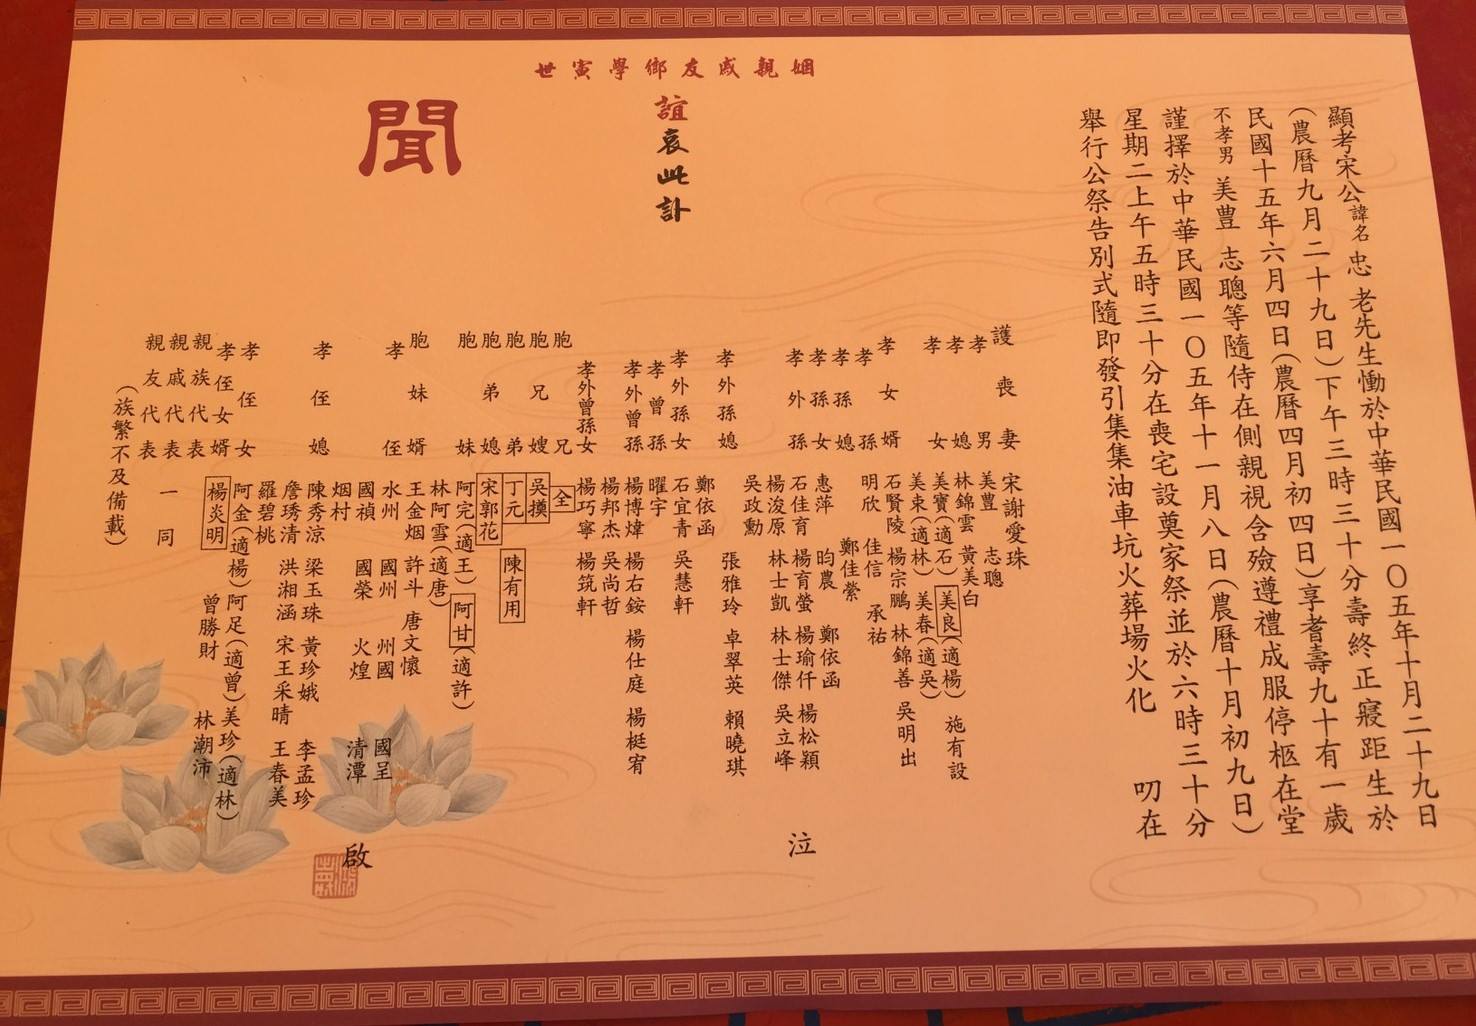 顯考宋公諱名忠 老先生慟於中華民國一〇五年十月二十九日
(農曆九月二十九日)下午三時三十分壽終正寢距生於
民國十五年六月四日(農曆四月初四日)享耆壽九十有一歲
不孝男 美豊 志聰等隨侍在側親視含殮遵禮成服停柩在堂
謹擇於中華民國一〇五年十一月八日(農曆十月初九日)
星期二上午五時三十分在喪宅設奠家祭並於六時三十分
舉行公祭告別式隨即發引集集油車坑火葬場火化 叨在
姻親戚友鄉學寅世
誼哀此訃
聞
護喪妻 宋謝愛珠
孝男 美豊 志聰
孝媳 林錦雲 黃美白
施有設
孝女 美寶(適石) 美良(適楊)
美束(適林) 美春(適吳)
孝女婿 石賢陵 楊宗鵬 林錦善 吳明出
孝孫 明欣 佳信 承祐
孝孫媳 鄭佳縈
孝孫女 惠萍 昀農 鄭依函
孝外孫 石佳育 楊育螢 楊瑜仟 楊松穎
楊浚原 林士凱 林士傑 吳立峰
吳政勳
孝外孫媳 張雅玲 卓翠英 賴曉琪
鄭依函
孝外孫女 石宜青 吳慧軒
孝曾孫 曜宇
孝外曾孫 楊博煒 楊右銨 楊仕庭 楊梃宥
楊邦杰 吳尚哲
孝外曾孫女 楊巧寧 楊筑軒
胞兄 全
胞兄嫂 吳摸
胞弟 丁元 陳有用
胞弟媳 宋郭花
胞妹 阿完(適王) 阿甘(適許)
林阿雪(適唐)
胞妹婿 王金烟 許斗 唐文懷
孝侄 水州 國州 州國 國呈
國禎 國榮 火煌 清潭
烟村
孝侄媳 陳秀涼 梁玉珠 黃珍娥 李孟珍
詹琇清 洪湘涵 宋王采晴 王春美
羅碧桃
孝侄女 阿金(適楊)阿足(適曾)美珍(適林)
孝侄女婿 楊炎明 曾勝財 林潮沛
親族代表
親戚代表 一同
親友代表
(族繁不及備載)
泣
啟